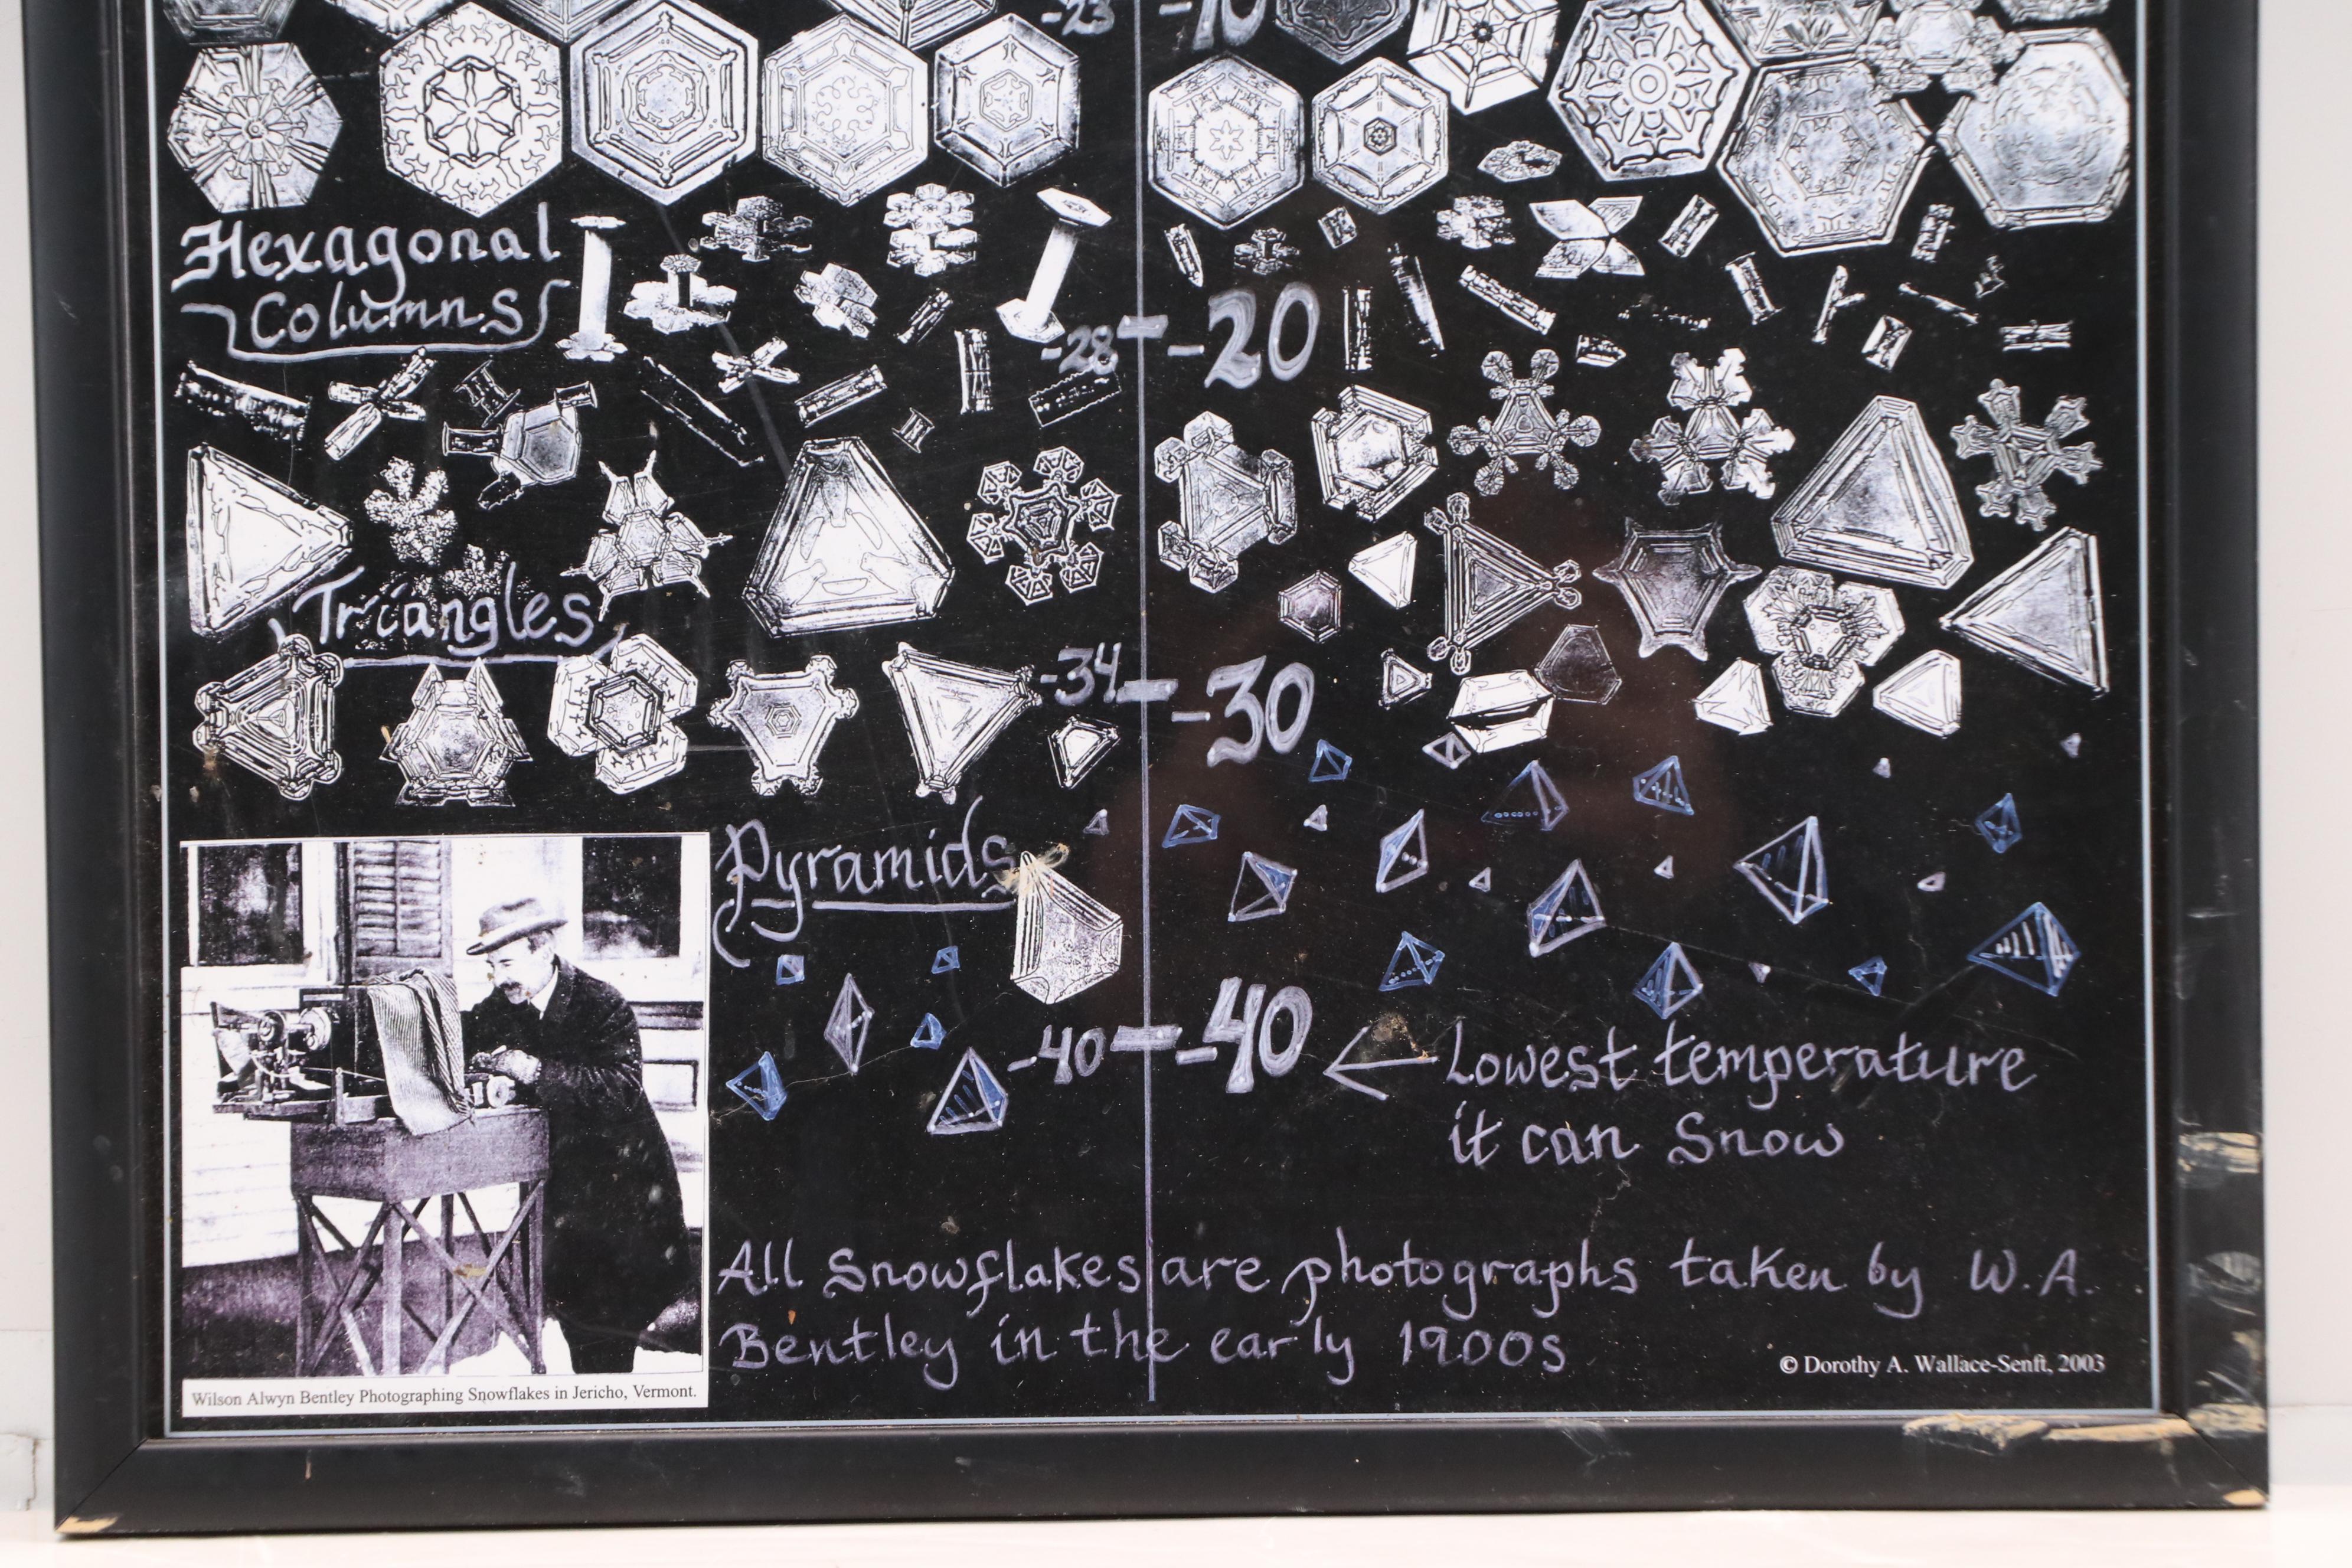 -23 -10
Hexagonal
Columns
-28 -20
Triangles
-34 -30
Pyramids
-40 -40 Lowest temperature
it can Snow
All Snowflakes are photographs taken by W.A.
Bentley in the early 1900s
© Dorothy A. Wallace-Senft, 2003
Wilson Alwyn Bentley Photographing Snowflakes in Jericho, Vermont.